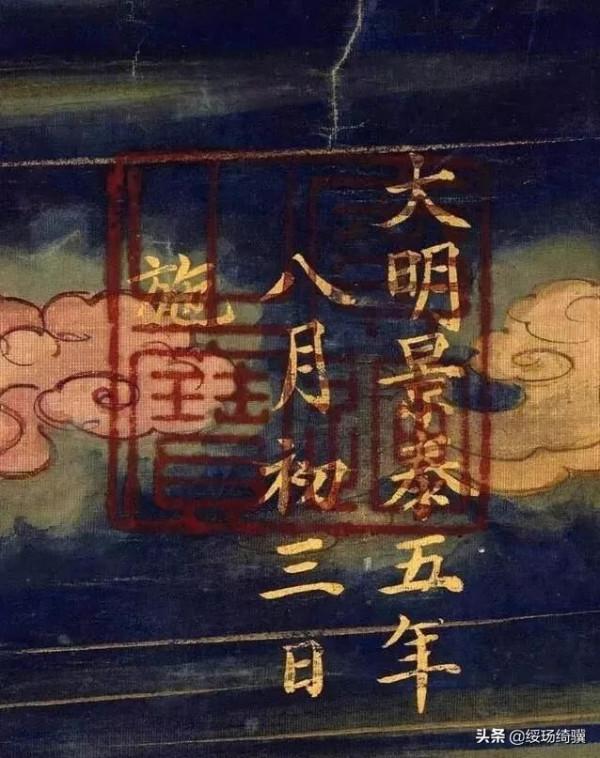 大明景泰五年
八月初三日
施
头条 @绥玚绮骥